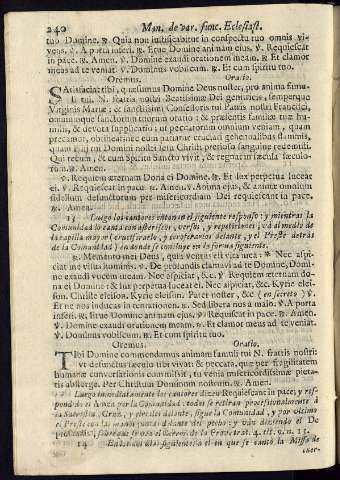 240 Man. de var. func. Eclesiast.
tuo Domine. ℟. Quia non iustificabitur in conspectu tuo omnis vi-
vens. ℣. A porta inferi. ℟. Erue Domine animam ejus. ℣. Requiescat
in pace. ℟. Amen. ℣. Domine exaudi orationem meam. ℟. Et clamor
meus ad te veniat. ℣. Dominus vobiscum. ℟. Et cum spiritu tuo.
Oremus. Oratio.
SAtisfaciat tibi, quæsumus Domine Deus noster, pro anima famu-
li tui, N. fratris nostri Beatissimæ Dei genitricis, semperque
Virginis Mariæ, & sanctissimi Confessoris tui Patris nostri Francisci,
omniumque sanctorum tuorum oratio; & præsentis familiæ tuæ hu-
milis, & devota supplicatio; ut peccatorum omnium veniam, quam
precamur, obtineat; nec eum patiaris cruciari gehennalibus flammis,
quem Filij tui Domini nostri Iesu Christi pretioso sanguine redemisti.
Qui tecum, & cum Spiritu Sancto vivit, & regnat in sæcula sæculo-
rum. ℟. Amen.
℣. Requiem æternam dona ei Domine. ℟. Et lux perpetua luceat
ei. ℣. Requiescat in pace. ℟. Amen. ℣. Anima ejus, & animæ omnium
fidelium defunctorum per misericordiam Dei requiescant in pace.
℟. Amen.
13 Luego los cantores entonan el siguiente responso; y mientras la
Comunidad lo canta con versos, y repeticiones, và al medio de
la capilla mayor el y el Preste detràs
de la Comunidad; en donde se concluye en la forma siguiente.
℟. Memento mei Deus, quia ventus est vita mea: * Nec aspi-
ciat me visus hominis. ℣. De profundis clamavi ad te Domine, Domi-
ne exaudi vocem meam. Nec aspiciat, &c. ℣. Requiem æternam do-
na ei Domine: & lux perpetua luceat ei. Nec aspiciat, &c. Kyrie elei-
son. Christe eleison. Kyrie eleison. Pater noster, &c. (en secreto) ℣.
Et ne nos inducas in tentationem. ℟. Sed libera nos à malo. ℣. A porta
inferi. ℟. Erue Domine animam ejus. ℣. Requiescat in pace. ℟. Amen.
℣. Domine exaudi orationem meam. ℟. Et clamor meus ad te veniat.
℣. Dominus vobiscum. ℟. Et cum spiritu tuo.
Oremus. Oratio.
TIbi Domine commendamus animam famuli tui N. fratris nostri
ut defunctus sæculo tibi vivat: & peccata, quæ per fragilitatem
humanæ conversationis commisit, tu venia misericordissimæ pieta-
tis absterge. Per Christum Dominum nostrum. ℟. Amen.
Luego inmediatamente los cantores dizen Requiescat in pace; y resp-
ponde el Amen por la Comunidad: todos se retiran procesionalmente à
la Sacristia, Cruz, y ciriales delante, sigue la Comunidad, y por vltimo
el Preste con las manos juntas delante del pecho; y vàn diziendo el De
profundis, 4. tit. 13.
14 En los dias siguientes à el en que se cantò la Missa de
cuer-